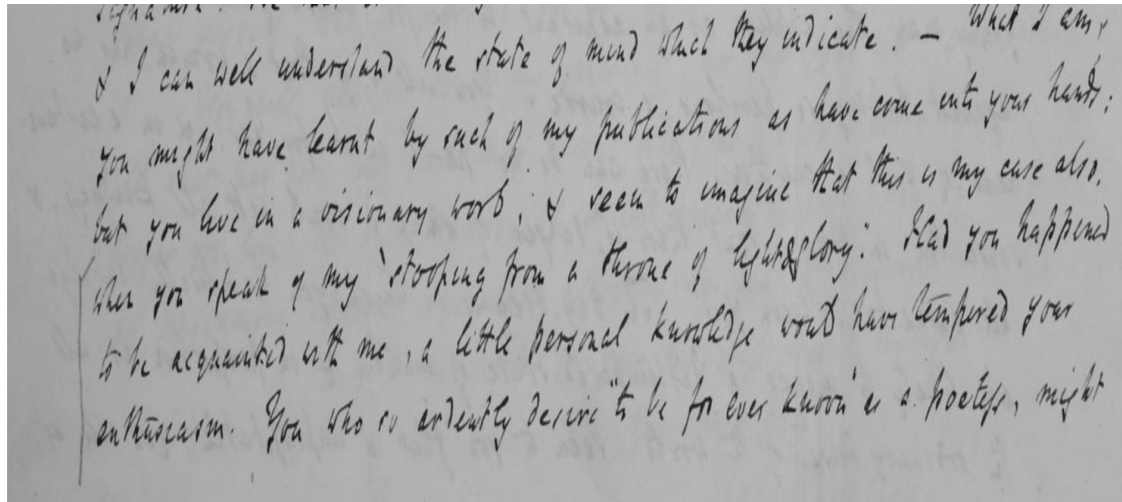 signature.
& I can well understand the state of mind which they indicate. — What I am,
you might have learnt by such of my publications as have come into your hands;
but you live in a visionary world, & seem to imagine that this is my case also,
when you speak of my "stooping from a throne of light & glory." Had you happened
to be acquainted with me, a little personal knowledge would have tempered your
enthusiasm. You who so ardently desire "to be for ever known" as a poetess, might